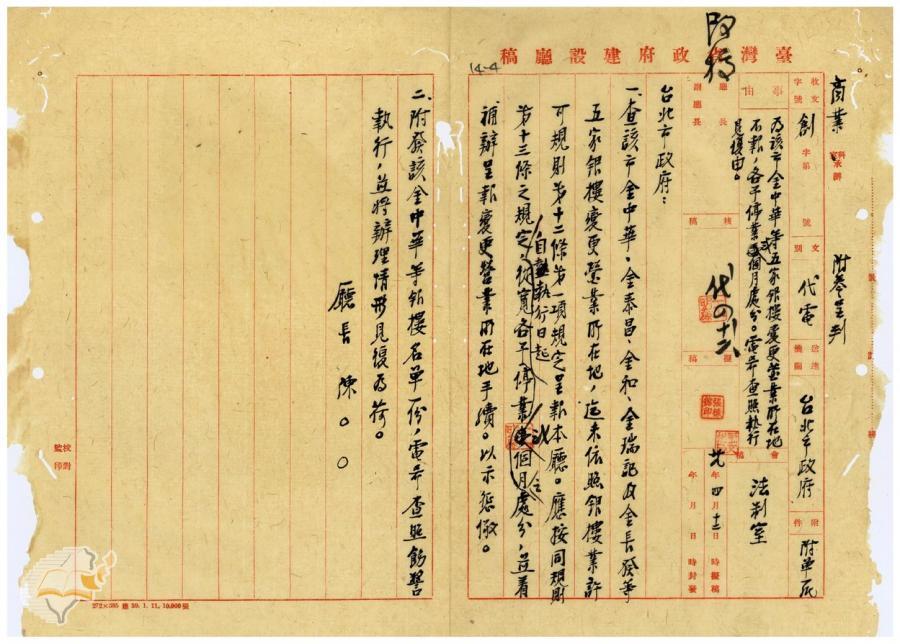 臺灣省政府建設廳稿
收文
字號
創
字第
號
文別
代電
送達機關
台北市政府
附件
附單一份
商業
科
室
承辦
事由
為該市金中華等五家銀樓變更營業所在地
不報，各予停業個月處分。電希查照執行
見復由。
會稿
法制室
廳長
副廳長
核稿
擬稿
年四月十二日 時擬稿
年 月 日 時封發
台北市政府：
一、查該市金中華、金泰昌、金和、金瑞記及金長發等
五家銀樓變更營業所在地，迄未依照銀樓業許
可規則第十二條第一項規定呈報本廳。應按同規則
第十三條之規定，從寬各予停業個月之處分，並着
自執行日起
補辦呈報變更營業所在地手續。以示懲儆。
二、附發該金中華等銀樓名單一份，電希查照飭警
執行，並將辦理情形見復為荷。
廳長 陳○○
校對
監印
14-4
272×385 39.1.11. 10,000張